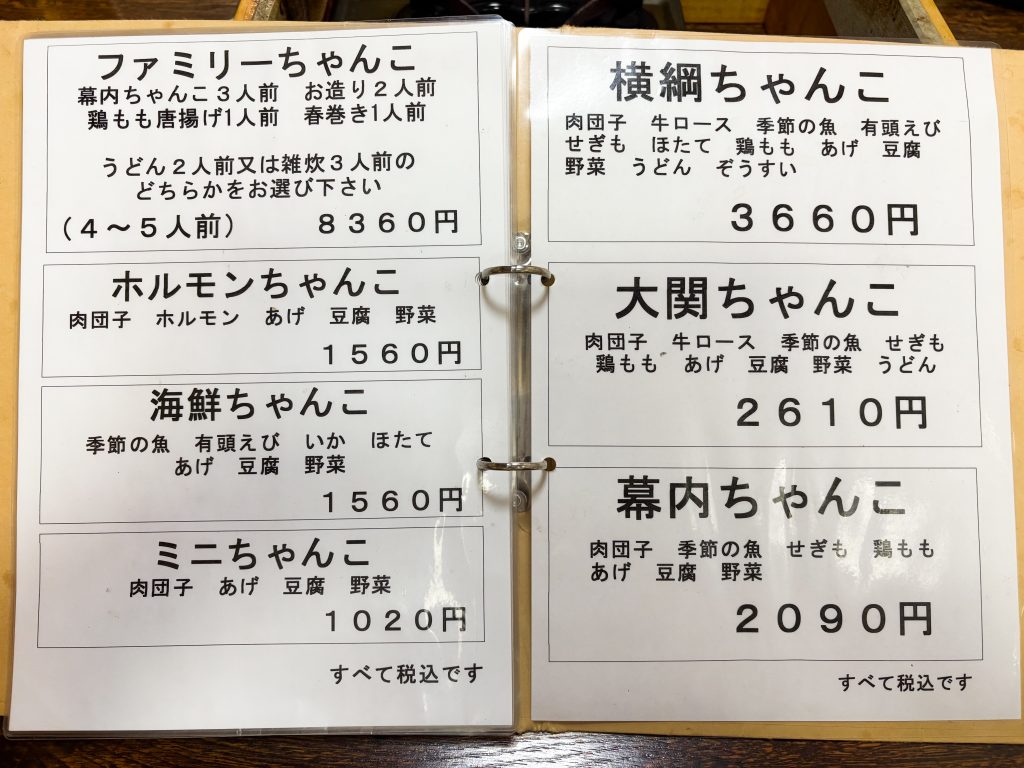 ファミリーちゃんこ
幕内ちゃんこ３人前　お造り２人前
鶏もも唐揚げ1人前　春巻き1人前
うどん２人前又は雑炊３人前の
どちらかをお選び下さい
（４～５人前）　８３６０円
ホルモンちゃんこ
肉団子　ホルモン　あげ　豆腐　野菜
１５６０円
海鮮ちゃんこ
季節の魚　有頭えび　いか　ほたて
あげ　豆腐　野菜
１５６０円
ミニちゃんこ
肉団子　あげ　豆腐　野菜
１０２０円
すべて税込です
横綱ちゃんこ
肉団子　牛ロース　季節の魚　有頭えび
せぎも　ほたて　鶏もも　あげ　豆腐
野菜　うどん　ぞうすい
３６６０円
大関ちゃんこ
肉団子　牛ロース　季節の魚　せぎも
鶏もも　あげ　豆腐　野菜　うどん
２６１０円
幕内ちゃんこ
肉団子　季節の魚　せぎも　鶏もも
あげ　豆腐　野菜
２０９０円
すべて税込です